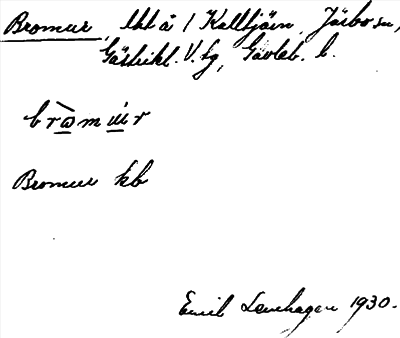 Bromur, tkt å / Kalltjärn, Järbo sn,
Gästrikl. V. tg, Gävleb. l.
bròmur
Bromur kb
Emil Lenhagen 1930.